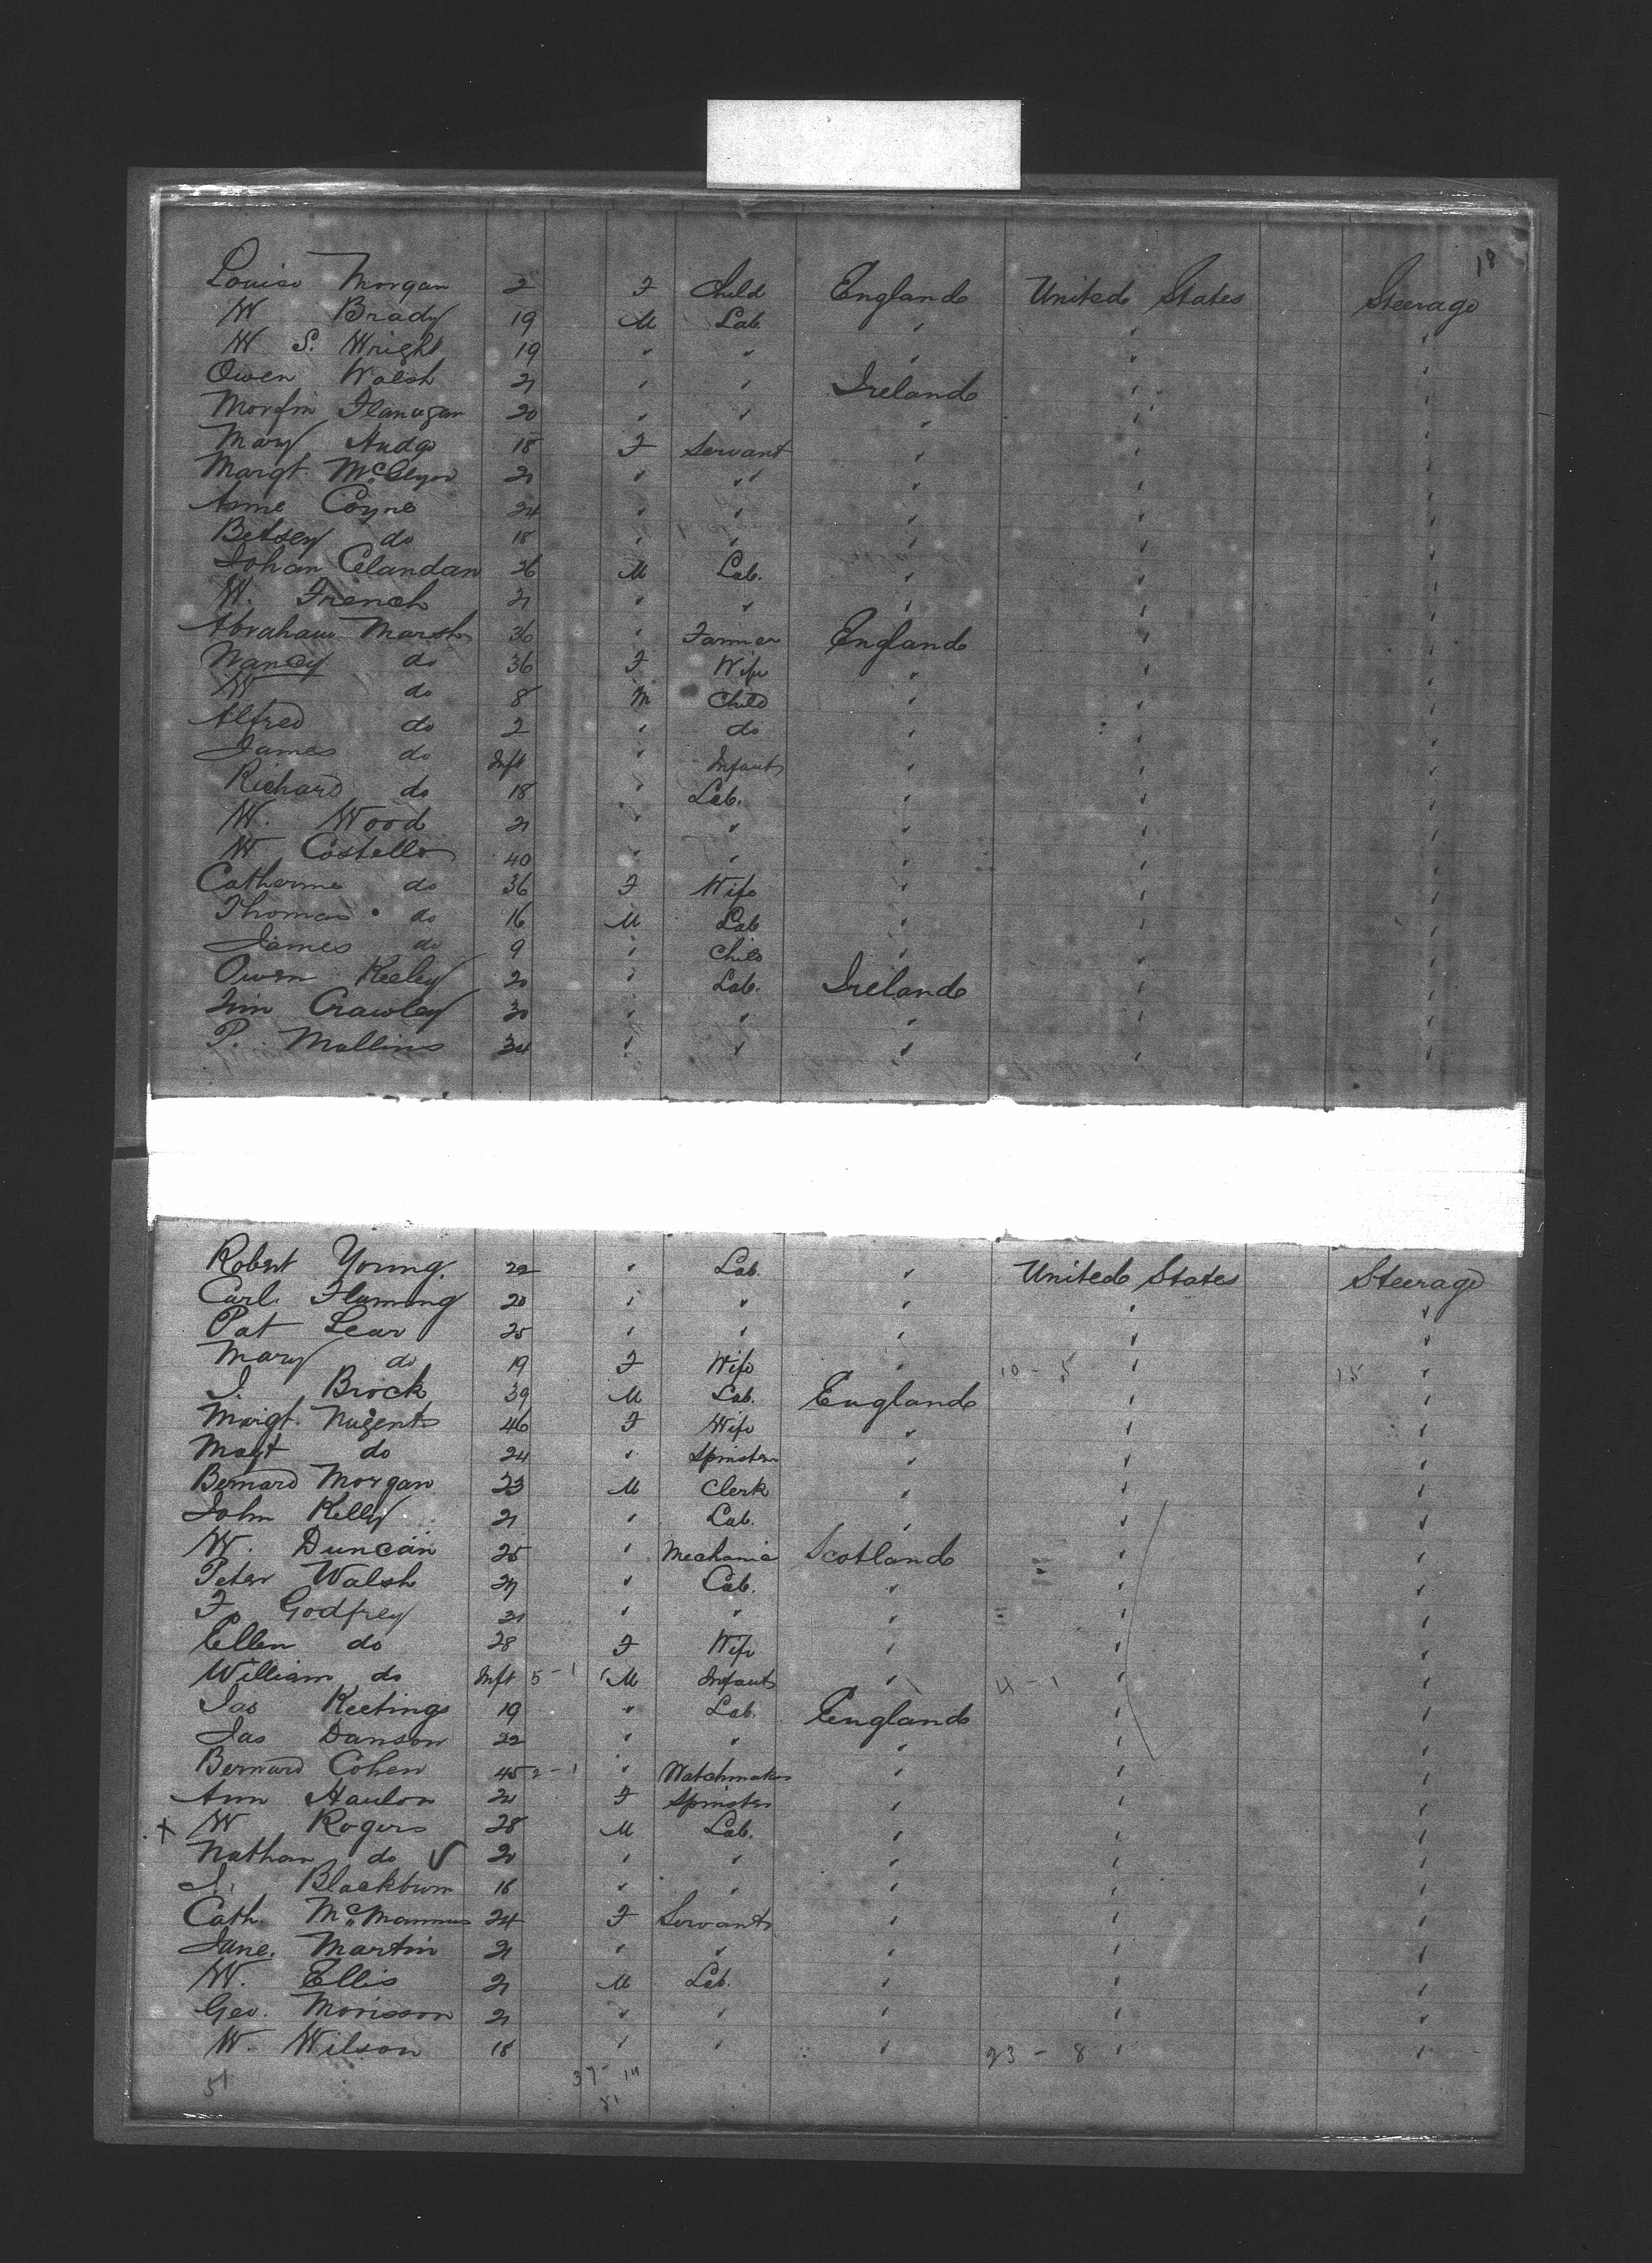 18
Louisa Morgan 2 F Child England United States Steerage
W Brady 19 M Lab. " " "
W. S. Wright 19 " " " " "
Owen Walsh 21 " " Ireland " "
Flanagan 20 " " " " "
Mary 18 F Servant " " "
Margt. 21 " " " " "
Anne Coyne 24 " " " " "
Betsey do 18 " " " " "
Johan Clandan 26 M Lab. " " "
W. French 21 " " " " "
Abraham Marsh 36 " Farmer England " "
Nancy do 36 F Wife " " "
W do 8 M Child " " "
Alfred do 2 " do " " "
James do Inft " Infant " " "
Richard do 18 " Lab. " " "
W. Wood 21 " " " " "
W Costello 40 " " " " "
Catherine do 36 F Wife " " "
Thomas do 16 M Lab " " "
James do 9 " Child " " "
Owen Keeley 20 " Lab. Ireland " "
Tim Crawley 30 " " " " "
P. Mullins 34 " " " " "
Robert Young. 22 " Lab. " United States Steerage
Carl. Fleming 20 " " " " "
Pat Lear 25 " " " " "
Mary do 19 F Wife " 10 - 5 " 15 "
J. Brock 39 M Lab. England " "
Margt. Nugent 46 F Wife " " "
Magt do 24 " Spinster " " "
Bernard Morgan 23 M Clerk " " "
John Kelly 21 " Lab. " " "
W. Duncan 25 " Mechanic Scotland " "
Peter Walsh " Lab. " " "
F Godfrey 21 " " " " "
Ellen do 28 F Wife " " "
William do Inft 5 - 1 M Infant " 4 - 1 " "
Jas Keetings 19 " Lab. England " "
Jas Danson 22 " " " " "
Bernard Cohen 45 2 - 1 " Watchmaker " " "
Ann Hanlon 21 F Spinster " " "
x W Rogers 28 M Lab. " " "
Nathan do 20 " " " " "
J. Blackburn 18 " " " " "
Cath. McMannus 24 F Servant " " "
Jane. Martin 21 " " " " "
W. Ellis 21 M Lab. " " "
Geo. Morisson 21 " " " " "
W. Wilson 18 " " " 23 - 8 " "
51 37 - 14
51